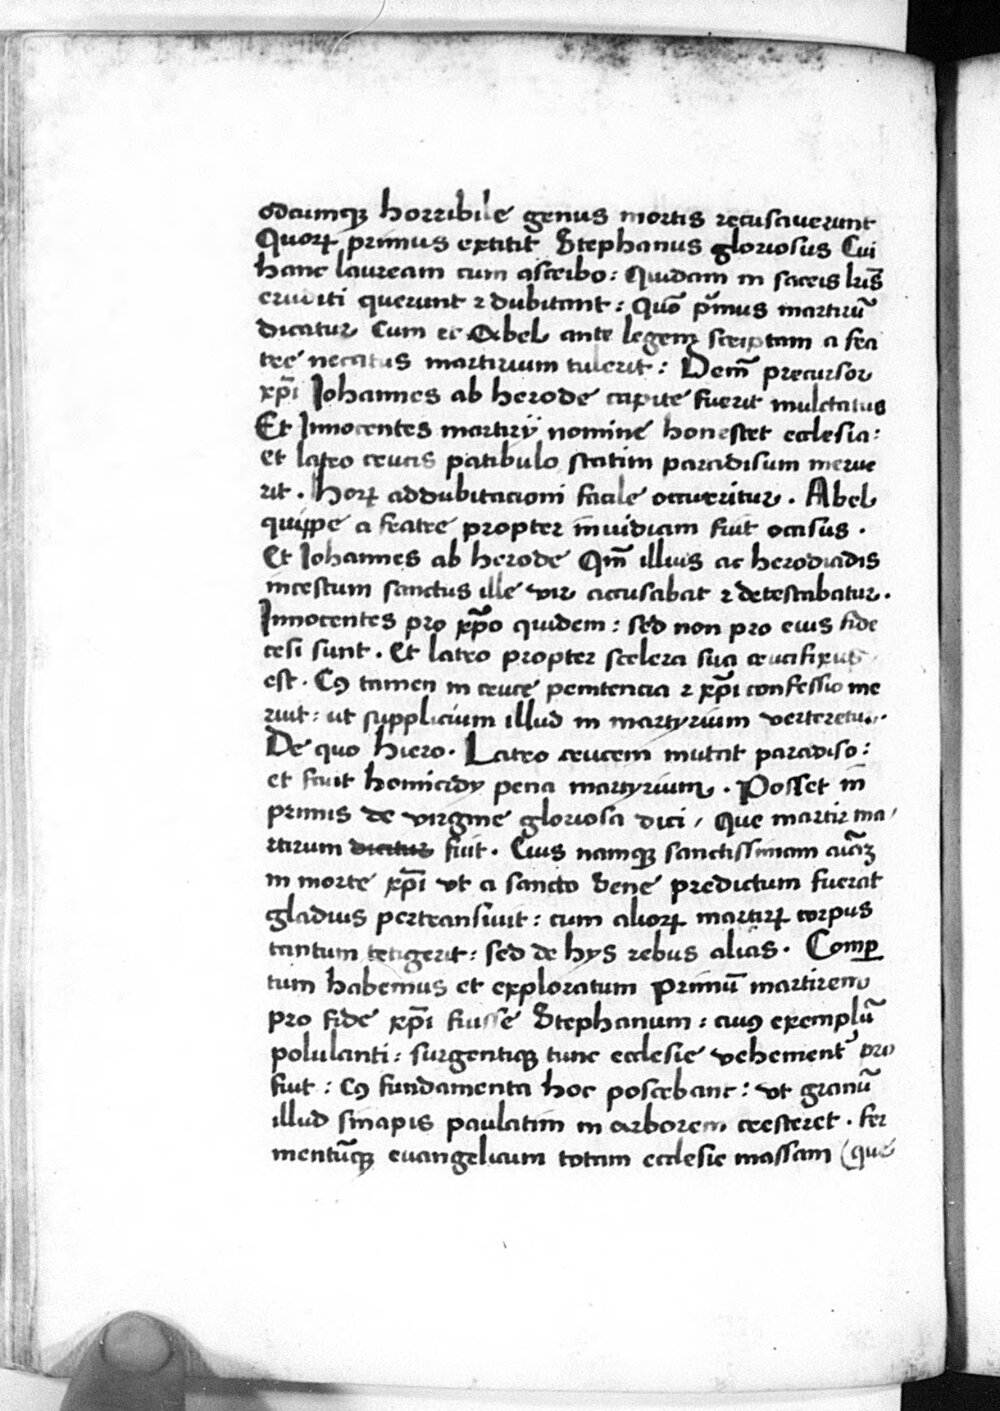 odcumqꝫ horribile genus mortis recusauerunt
Quorꝝ primus extitit Stephanus gloriosus Cui
hanc lauream cum ascribo: Quidam in sacris lr̄is
eruditi querunt ⁊ dubitant: Quō p̄mus martirū
dicatur Cum et Abel ante legem scriptam a fra
tre necatus martirium tulerit: Dem̄ precursor
xp̄i Iohannes ab herode capite fuerit mulctatus
Et Innocentes martirÿ nomine honestet ecclesia:
et latro crucis patibulo statim paradisum merue
rit. horꝝ addubitacioni facile occurritur. Abel
quippe a fratre propter inuidiam fuit occisus.
Et Iohannes ab herode Qm̄ illius ac herodiadis
incestum sanctus ille vir accusabat ⁊ detestabatur.
Innocentes pro xp̄o quidem: sed non pro eius fide
cesi sunt. Et latro propter scelera sua crucifixus
est. Cꝯ tamen in cruce penitencia ⁊ xp̄i confessio me
ruit: ut supplicium illud in martyrium verteretur.
De quo hiero. Latro crucem mutat paradiso:
et facit homicidy pena martyrium. Posset in
primis de virgine gloriosa dici, Que martir ma,
rtirum dicitur fuit. Cuius namqꝫ sanctissimam aīaꝫ
in morte xp̄i vt a sancto Sene predictum fuerat
gladius pertransiuit: cum aliorꝝ martirꝝ corpus
tantum tetigerit: sed de hys rebus alias. Comꝑ
tum habemus et exploratum Primū martirem
pro fide xp̄i fuisse Stephanum: cuiꝯ exemplū
polulanti: surgentiqꝫ tunc ecclesie vehement᾽ pro
fuit: Cꝯ fundamenta hoc poscebant: vt granū
illud sinapis paulatim in arborem cresceret. fer
mentūqꝫ euangelicum totam ecclesie massam (que